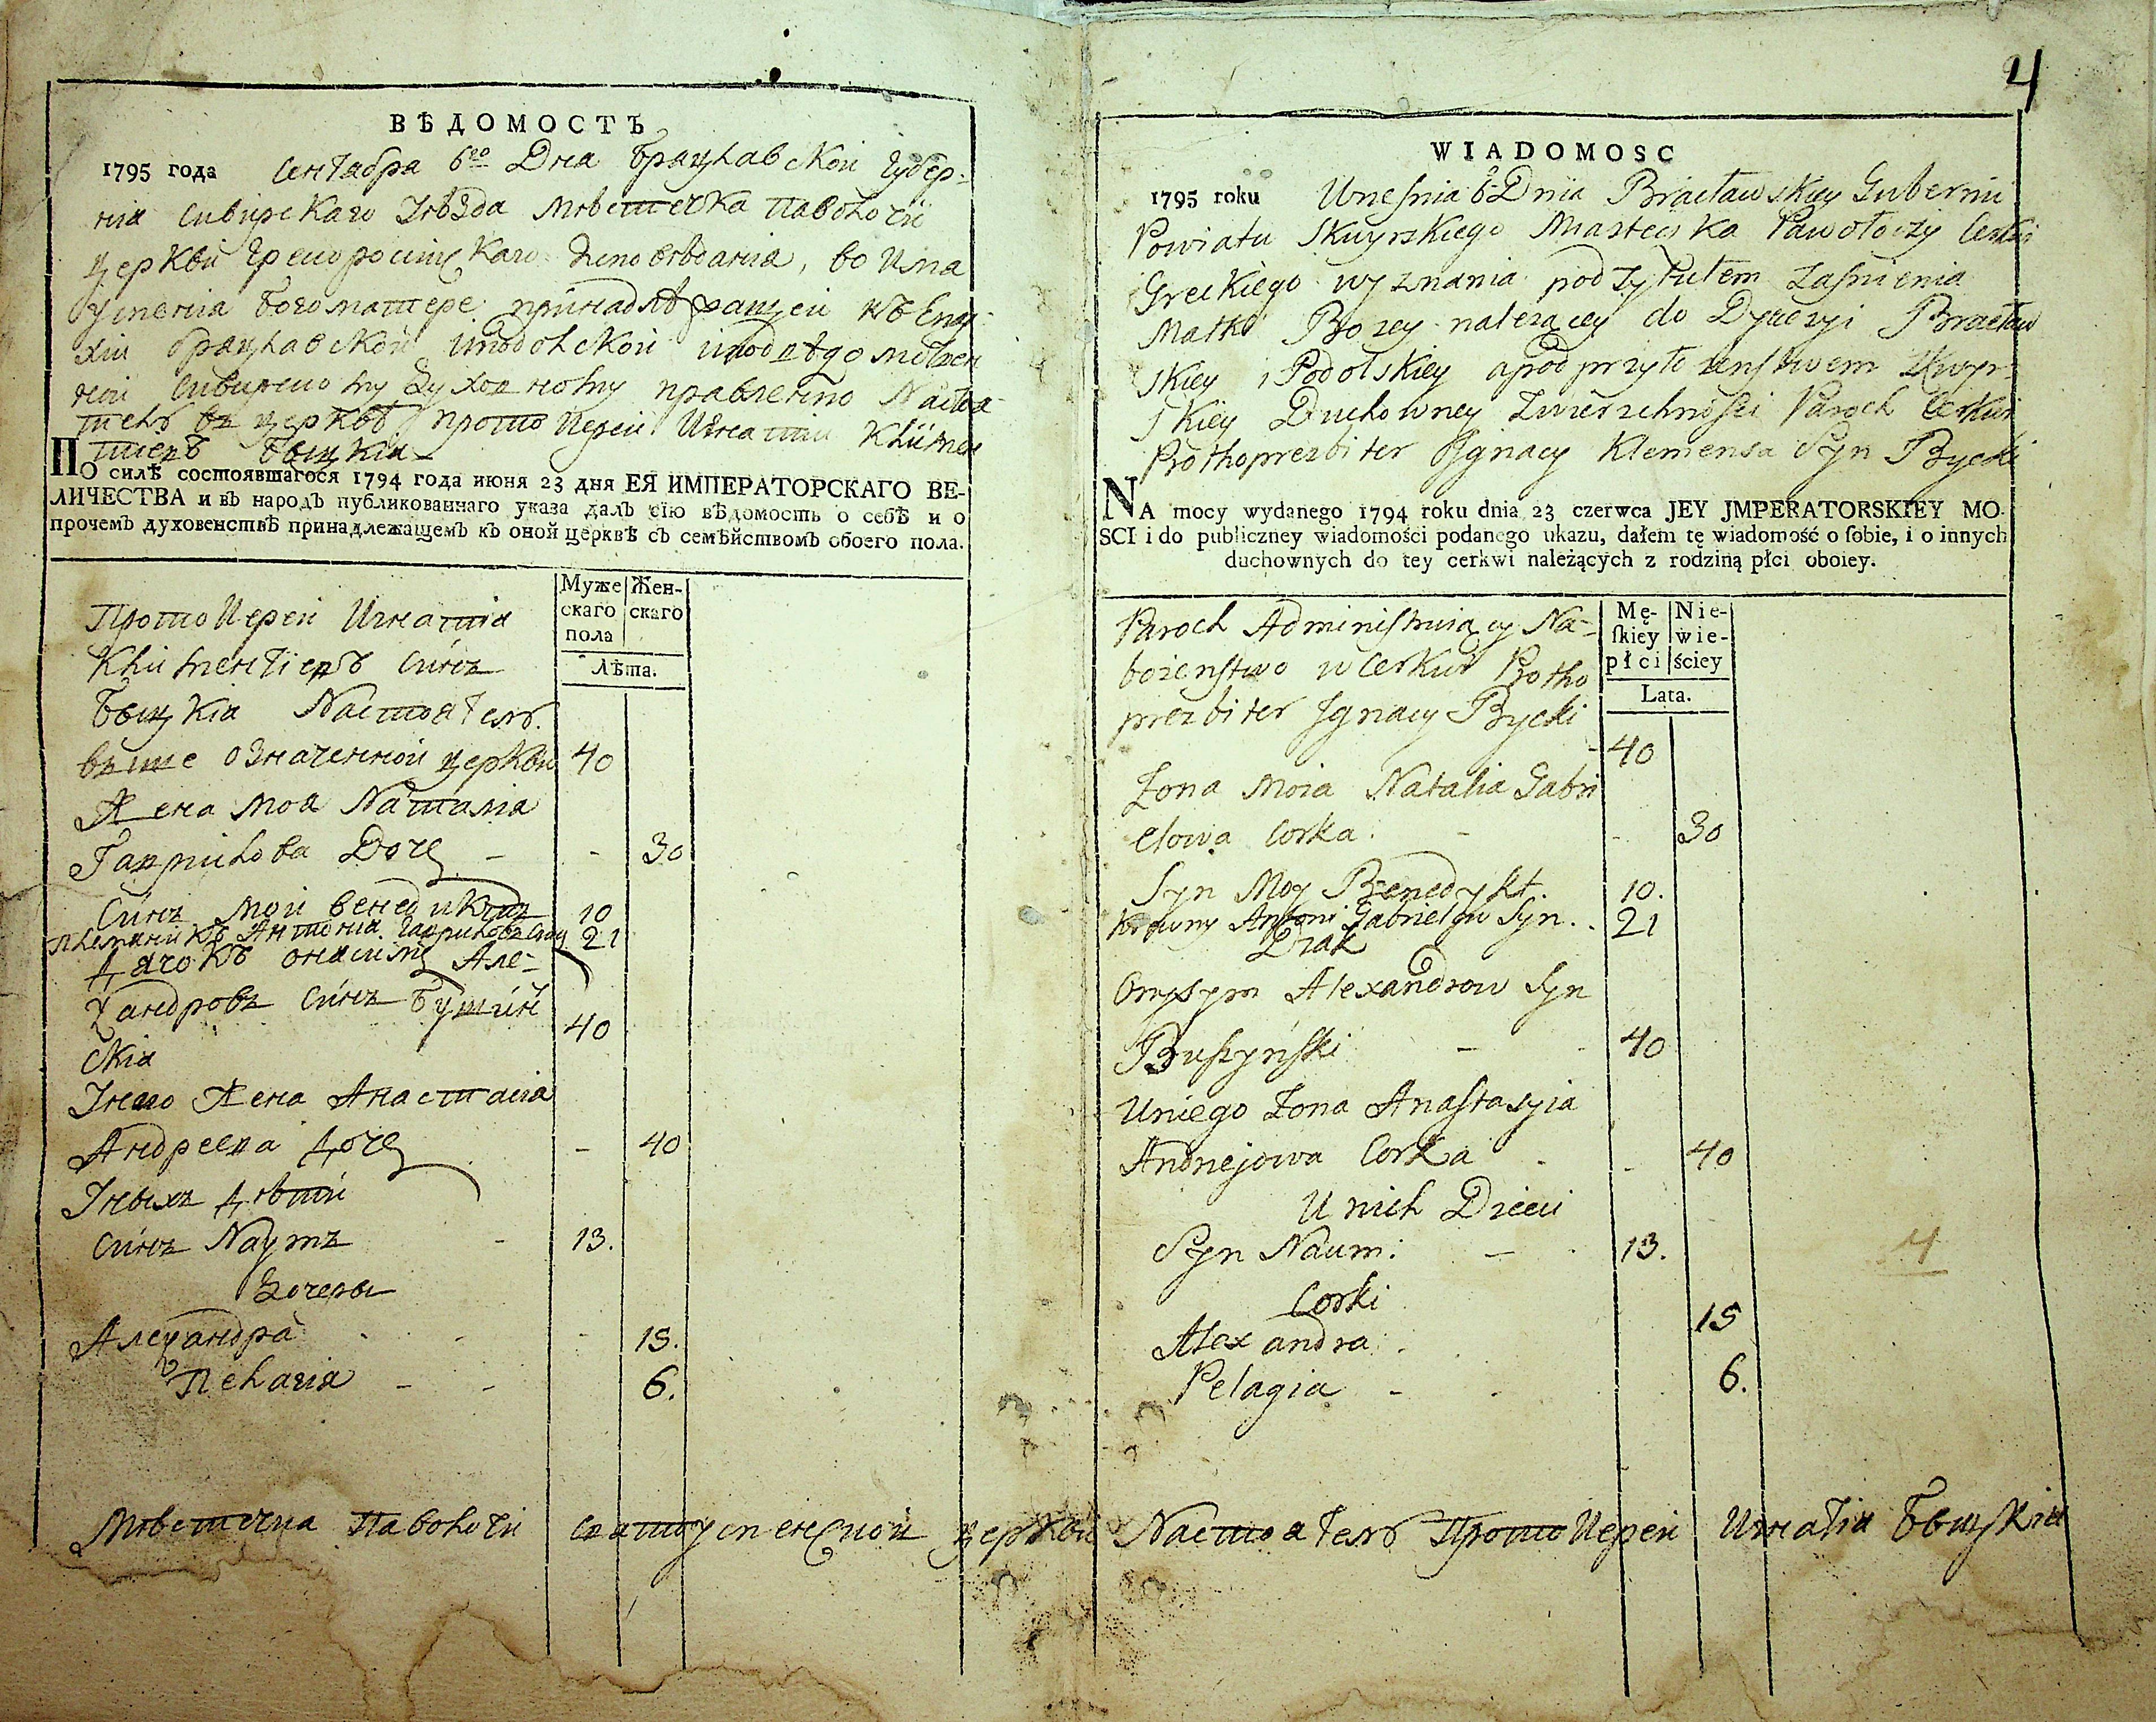 ВѢДОМОСТЬ
1795 года Сентабра 6го Дна Брацлавской Губер-
ніа Сквирскаго Уѣзда Мѣстечка Паволочи
церкви Грекороссійскаго Исповѣданіа, во Има
Успеніа Богоматере принадлежащей къ Епар-
хіи Брацлавской и Подолской и подвѣдомствен
ной Сквирскому Духовному правлению Настоа-
тель въ церквѣ протоиерей Игнатій Климен
тиевъ Быцкій
ПО силѣ состоявшагося 1794 года июня 23 дня ЕЯ ИМПЕРАТОРСКАГО ВЕ-
ЛИЧЕСТВА и въ народъ публикованнаго указа далъ сію вѣдомость о себѣ и о
прочемъ духовенствѣ принадлежащемъ къ оной церквѣ съ семѣйствомъ обоего пола.
Муже Жен-
скаго скаго
пола
Лѣта.
Протоиерей Игнатіи
Климентіевъ Сынъ
Быцкіи Настоатель
выше означенной церкви 40
Жена моа Наталіа
Гавриилова Дочь - - 30
Сынъ мой Венедиктъ 10
племянникъ Антоній Гавриловъ Сынъ 21
Дячокъ Онисимъ Але-
ѯандровъ Сынъ Бушин
скіи 40
Унего Жена Анастасіа
Андреева Дочь - 40
Унихъ Дѣти
Сынъ Наумъ - 13.
Дочеры
Алеѯандра - - 15.
Пелагіа - - 6.
4
WIADOMOSC
1795 roku Września 6 Dnia Bracławskiey Gubernii
Powiatu Skwyrskiego Miasteczka Pawołoczy Cerkwi
Greckiego wyznania pod Tytułem Zaśnienia
Matki Bozey należącey do Dyecezyi Bracław
skiey i Podolskiey a pod przyłożenstwem Skwyr-
skiey Duchowney Zwierzchności Paroch Cerkwi
Prothoprezbiter Jgnacy Klemensa Syn Bycki
NA mocy wydanego 1794 roku dnia 23 czerwca JEY JMPERATORSKIEY MO-
SCI i do publiczney wiadomości podanego ukazu, dałem tę wiadomość o ſobie, i o innych
duchownych do tey cerkwi należących z rodziną płci oboiey.
Mę- Nie-
ſkiey wie-
płci ściey
Lata.
Paroch Administruiący Na-
bożenstwo w Cerkwi Protho
prezbiter Jgnacy Bycki - 40
Żona Moia Natalia Gabri
elowa Corka - - 30
Syn Moy Benedykt. 10.
Krewny Antoni Gabrielow Syn . . 21
Dzak
Onysym Alexandrow Syn
Buszyński - 40
U niego Żona Anastazyia
Andrzejowa Corka - - 40
U nich Dzieci
Syn Naum: - 13.
Corki
Alexandra . 15
Pelagia - 6.
4
Мѣстечка Паволочи Сватоуспенской церкви Настоатель Протоиерей Игнатіи Быцкіи